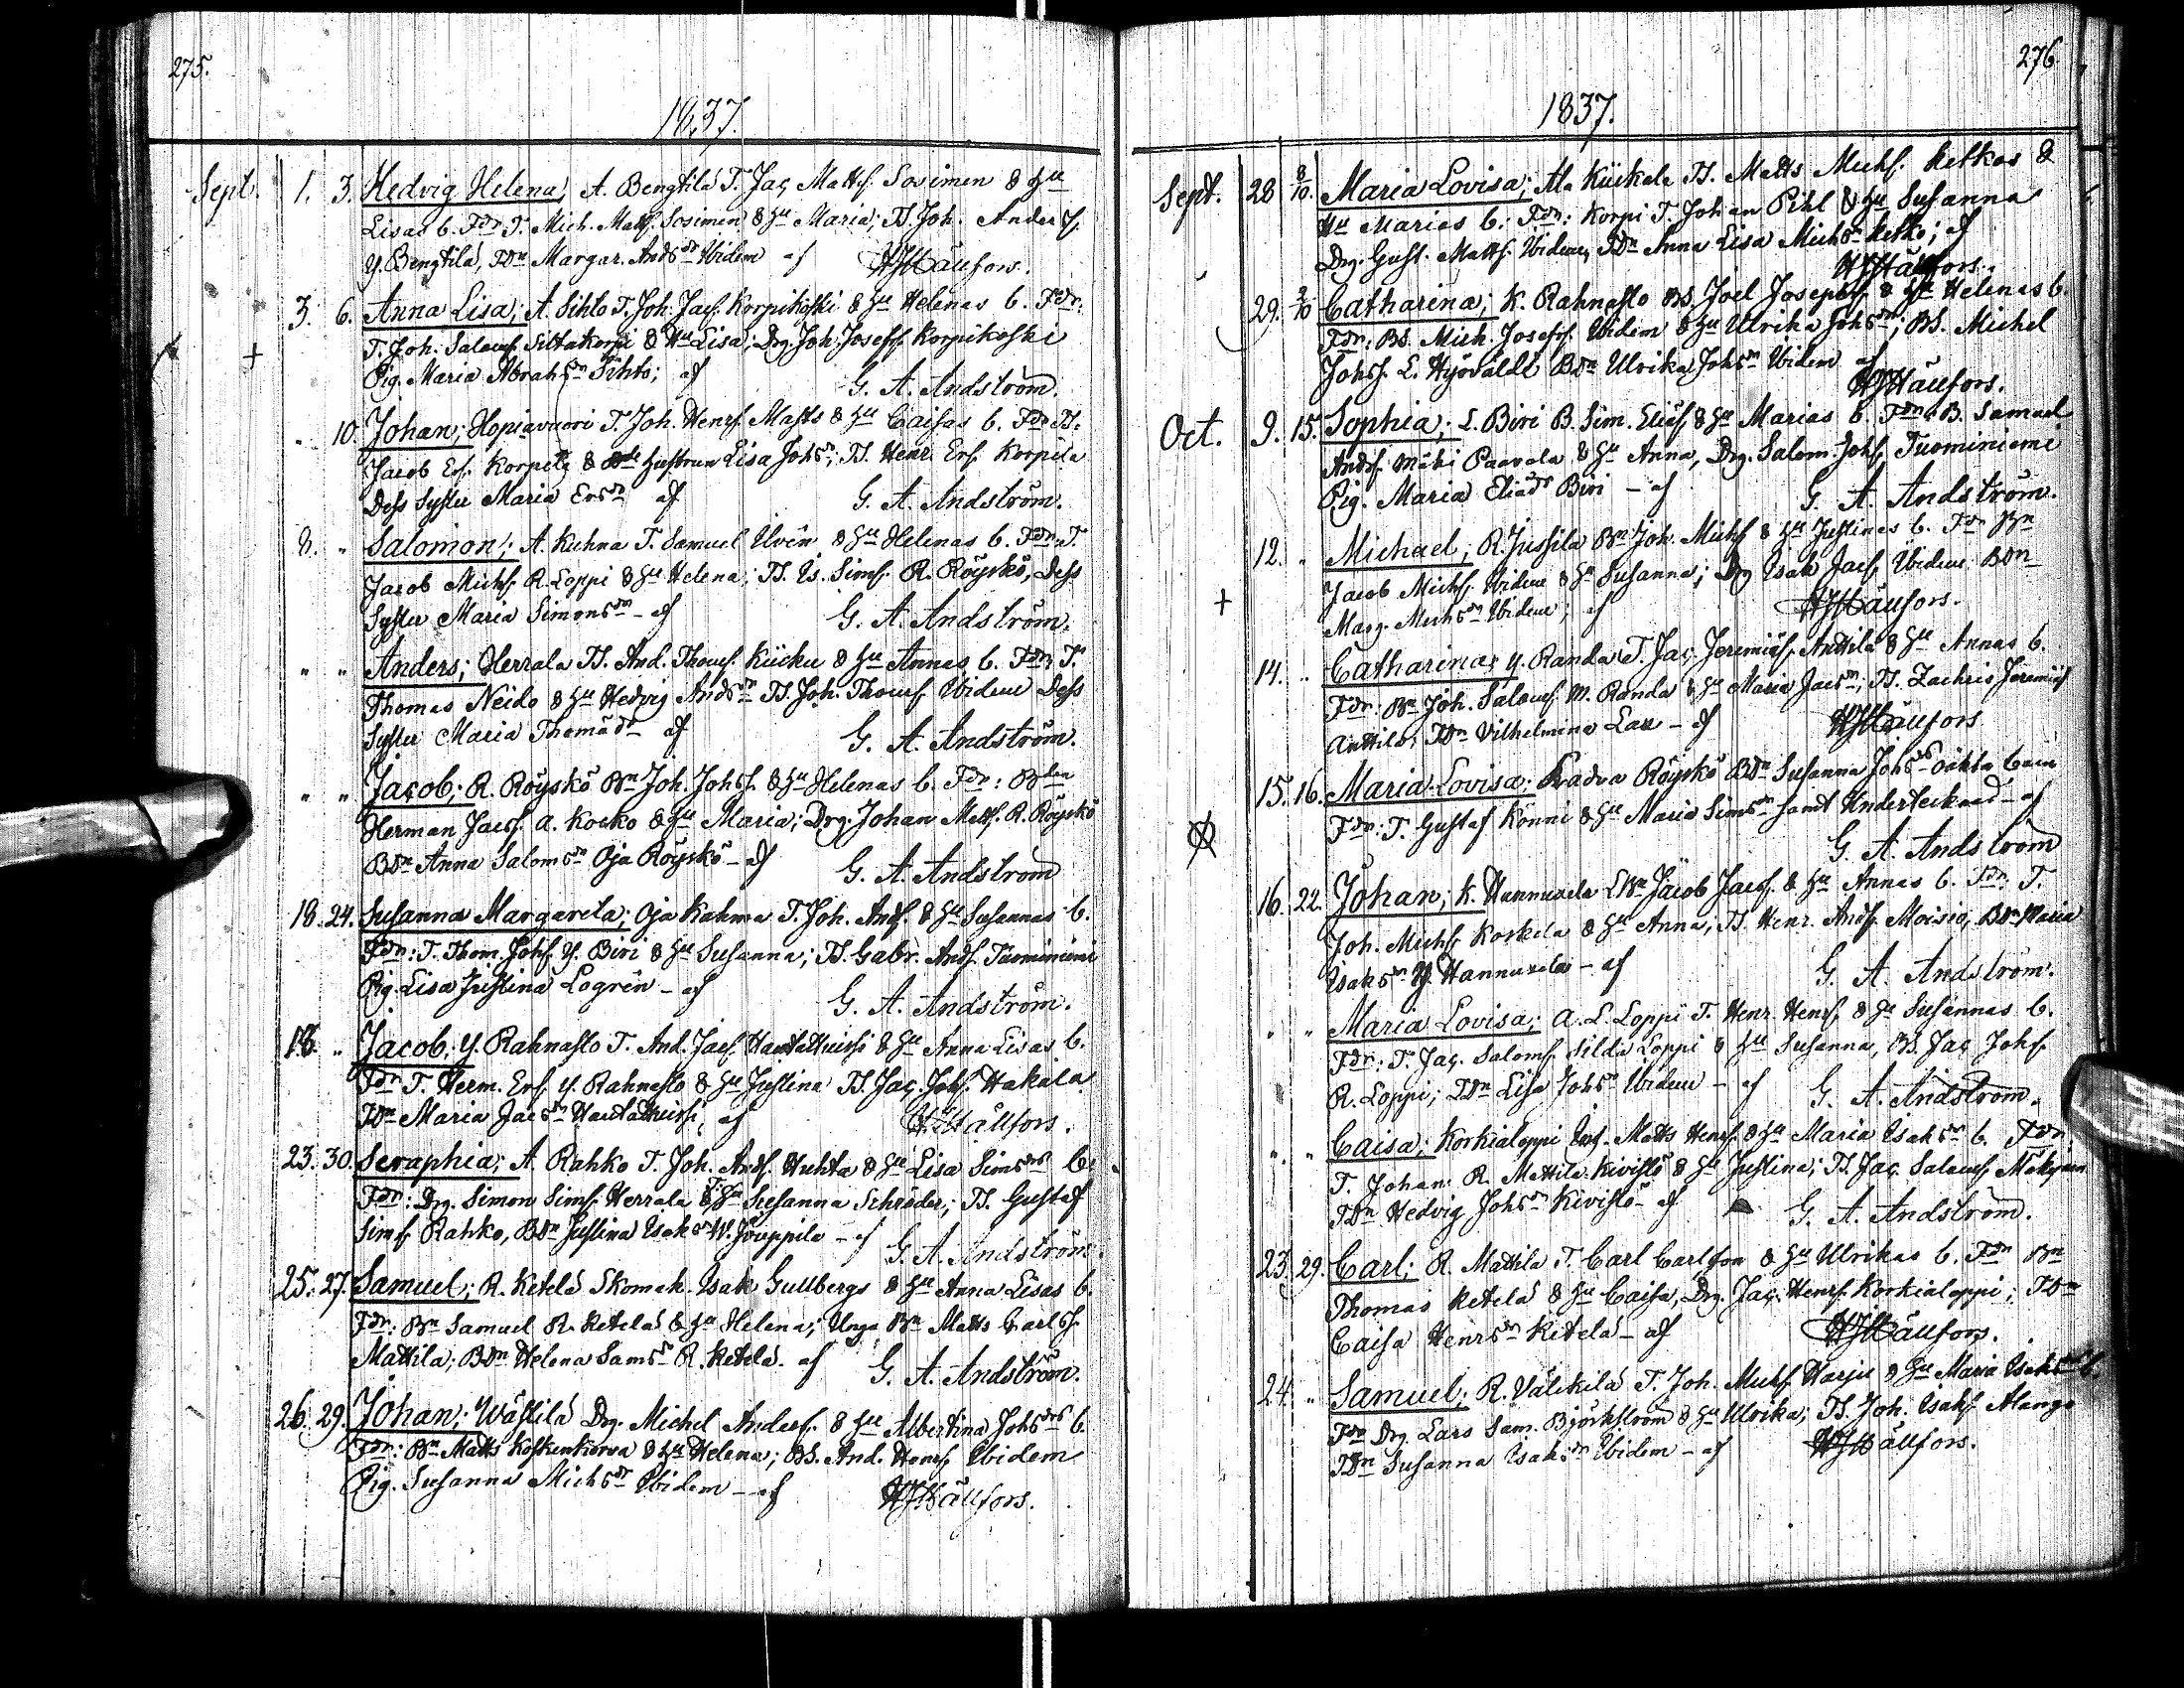 275.
1837.
Sept. 1. 3. Hedvig Helena; A. Bengtilä T. Jaç Mattsf. Sosimen & Hu
Lisas b. Fdr T. Mich. Mattsf. Sosimen & Hu Maria; TS. Joh. Andersf.
Y. Bengtilä, TDn Margar. Andsdr Ibidem af HHällfors.
3. 6. Anna Lisa; A. Sihto T. Joh. Jacf. Korpikoski & Hu Helenas b. Fdr:
T. Joh. Salomf. Siltakorpi & Hu Lisa; Drg. Joh. Joseff. Korpikoski
Pig. Maria Abrahsdr Sihto; af G. A. Andström.
" 10. Johan; Hopiavuori T. Joh. Henrf. Matts & Hu Caisas b. Fdr TS.
Jacob Erf. Korpela & Hustrun Lisa Johsdr; TS. Henr. Erf. Korpela
Dess Syster Maria Ersdr af G. A. Andström.
8. " Salomon; A. Kuhna T. Samuel Ulvin & Hu Helenas b. Fdr. T.
Jacob Michf. R. Loppi & Hu Helena; TS. Is. Simf. R. Röyskö, Dess
Syster Maria Simonsdr - af G. A. Andström.
" " Anders; Herrala TS. And. Thomf. Kücku & Hu Annas b. Fdr T.
Thomas Neido & Hu Hedvig Andsdr TS. Joh. Thomf. Ibidem Dess
Syster Maria Thomädr af G. A. Andström.
" " Jacob; R. Röyskö Bn Joh. Johsf. & Hu Helenas b. Fdr: Bden
Herman Jacf. A. Kocko & Hu Maria; Drg. Johan Mattf. R. Röyskö
BDn Anna Salomsdr Oja Röyskö - af G. A. Andström
18. 24. Susanna Margareta; Oja Kahma T. Joh. Andf. & Hu Susannas b.
Fdr: T. Thom. Johf. Y. Biri & Hu Susanna; TS. Gabr. Andf. Tuominiemi
Pig. Lisa Justina Logrén - af G. A. Andström.
18. " Jacob; Y. Rahnasto T. And. Jacf. & Hu Anna Lisas b.
Fdr T. Herm. Erf. Y. Rahnasto & Hu Justina TS. Jaç. Johf. Hakala
TDn Maria Jacsdr af HHällfors.
23. 30. Seraphia; A. Rahko T. Joh. Andf. Huhta & Hu Lisa Simsdrs b.
Fdr: Drg. Simon Simf. Herrala & Susanna Schröder; TS. Gustaf
Simf. Rahko, BDn Justina Isaksdr W. Jouppila - af G. A. Andström.
25. 27. Samuel; R. Ketelä Skomak. Isak Gullbergs & Hu Anna Lisas b.
Fdr: Bn Samuel R. Ketelä & Hu Helena; Unga Bn Matts Carlsf.
Mattila; BDn Helena Samsdr R. Ketelä - af G. A. Andström.
26. 29. Johan; Wästilä Drg. Michel Andersf. & Hu Albertina Johsdrs b.
Fdr: Bn Matts Koskenkorva & Hu Helena; BS. And. Henrf. Ibidem
Pig. Susanna Michsdr Ibidem - af HHällfors.
276.
1837.
Sept. 28 8/10. Maria Lovisa; Ala Kückala TS. Matts Michf. Ketkos &
Hu Marias b. Fdr: Korpi T. Johan Pihl & Hu Susanna
Drg. Gust. Mattsf. Ibidem, TDn Anna Lisa Michsdr Ketko; af
HHällfors.
29. 2/10 Catharina; K. Rahnasto BS. Joel Josephf. & Hu Helenas b.
Fdr: BS. Mich. Josepf. Ibidem & Hu Ulrika Johsdr; BS. Michel
Johsf. L. Hyöväldt BDn Ulrika Johsdr Ibidem af HHällfors.
Oct. 9. 15. Sophia; L. Biri B. Sim. Eliäf. & Hu Marias b. Fdr B. Samuel
Andf. Mäki Paavola & Hu Anna, Drg. Salom. Johf. Tuominiemi
Pig. Maria Eliädr Biri - af G. A. Andström.
12. " Michael; R. Jussila Bn Joh. Michf. & Hu Justinas b. Fdr Bn
Jacob Michf. Ibidem & Hu Susanna; Drg Isak Jacf. Ibidem BDn
Marg. Michsdr Ibidem; af HHällfors.
14. " Catharina; Y. Randa T. Jaç. Jeremiäf. Anttila & Hu Annas b.
Fdr: Bn Joh. Salomf. M. Randa & Hu Maria Jacsdr; TS. Zachris Jeremiäf
Anttila; TDn Vilhelmina Lax - af HHällfors
15. 16. Maria Lovisa; Ladva Röyskö BDn Susanna Johsdrs oächta barn
Fdr: T. Gustaf Könni & Hu Maria Simsdr samt Undertecknad - af
G. A. Andström
16. 22. Johan; K. Hannuxela LBn Jacob Jacf. & Hu Annas b. Fdr: T.
Joh. Michf. Koskela & Hu Anna; TS. Henr. Andf. Moisio, BDn Maria
Isaksdr Y. Hannuxela - af G. A. Andström.
" " Maria Lovisa; A. L. Loppi T. Henr. Henrf. & Hu Susannas b.
Fdr: T. Jaç. Salomf. Sildä Loppi & Hu Susanna, BS. Jaç Johf.
R. Loppi; TDn Lisa Johsdr Ibidem - af G. A. Andström.
" " Caisa; Korkialoppi Inh. Matts Henrf. & Hu Maria Isaksdr b. Fdr:
T. Johan R. Mattila Kivistö & Hu Justina; TS. Jaç. Salomf.
TDn Hedvig Johsdr Kivistö - af G. A. Andström.
23. 29. Carl; R. Mattila T. Carl Carlsson & Hu Ulrikas b. Fdr Bn
Thomas Ketelä & Hu Caisa, Drg. Jaç. Henrf. Korkialoppi; TDn
Caisa Henrsdr Ketelä - af HHällfors.
24. " Samuel; R. Välikilä T. Joh. Michf. Harju & Hu Maria Isaksdrs b.
Fdr Drg. Lars Sam. Björkström & Hu Ulrika; TS. Joh. Isakf. Alango
TDn Susanna Isaksdr Ibidem - af HHällfors.